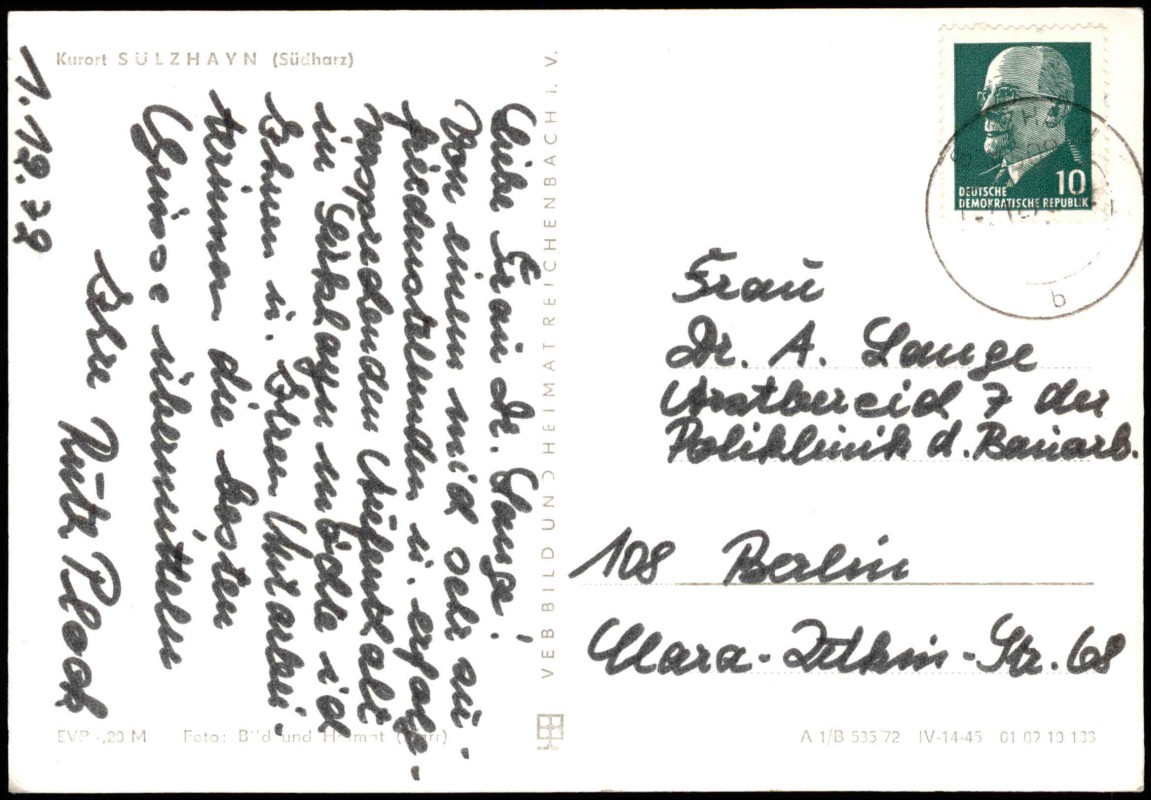 Kurort SÜLZHAYN (Südharz)
1.12.78
Liebe Frau Dr. Lange!
Von einem mich sehr zu-
friedenstellenden u. erfolg-
versprechenden Aufenthalt
in Sülzhayn möchte ich
Ihnen u. Ihren Mitarbei-
terinnen die besten
Grüsse übermitteln
Ihre Ruth Ploch
VEB BILD UND HEIMAT REICHENBACH i. V.
10
DEUTSCHE
DEMOKRATISCHE REPUBLIK
b
Frau
Dr. A. Lange
Arztbereich 7 der
Poliklinik d. Bauarb.
108 Berlin
Clara-Zetkin-Str. 68
EVP -,20 M Foto: Bild und Heimat
A 1/B 535/72 IV-14-45 01 02 10 133